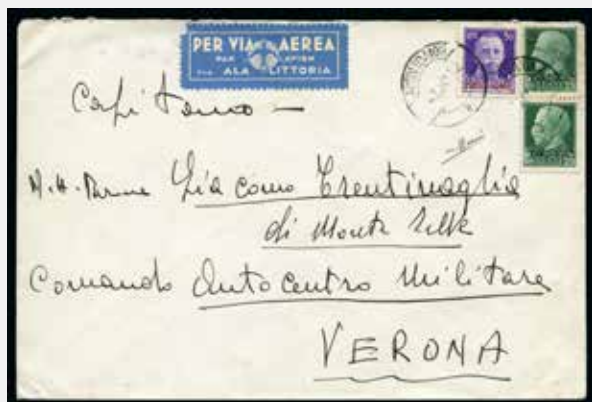 PER VIA AEREA
PAR AVION
ALA LITTORIA
Capitano —
N.H. Barone Giacomo Trentinaglia
di Monte
Comando Autocentro Militare
VERONA